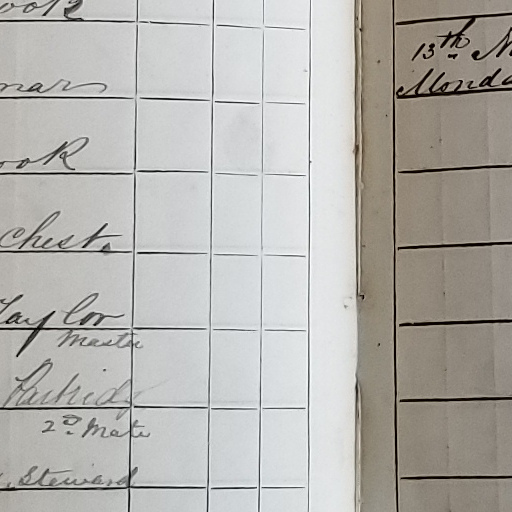 ook
ook
chest.
Taylor
Master
Partridg
2nd Mate
Steward
13th
Monda